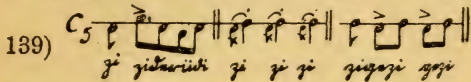 139) C5
zi ziderüdi zi zi zi zigezi gezi